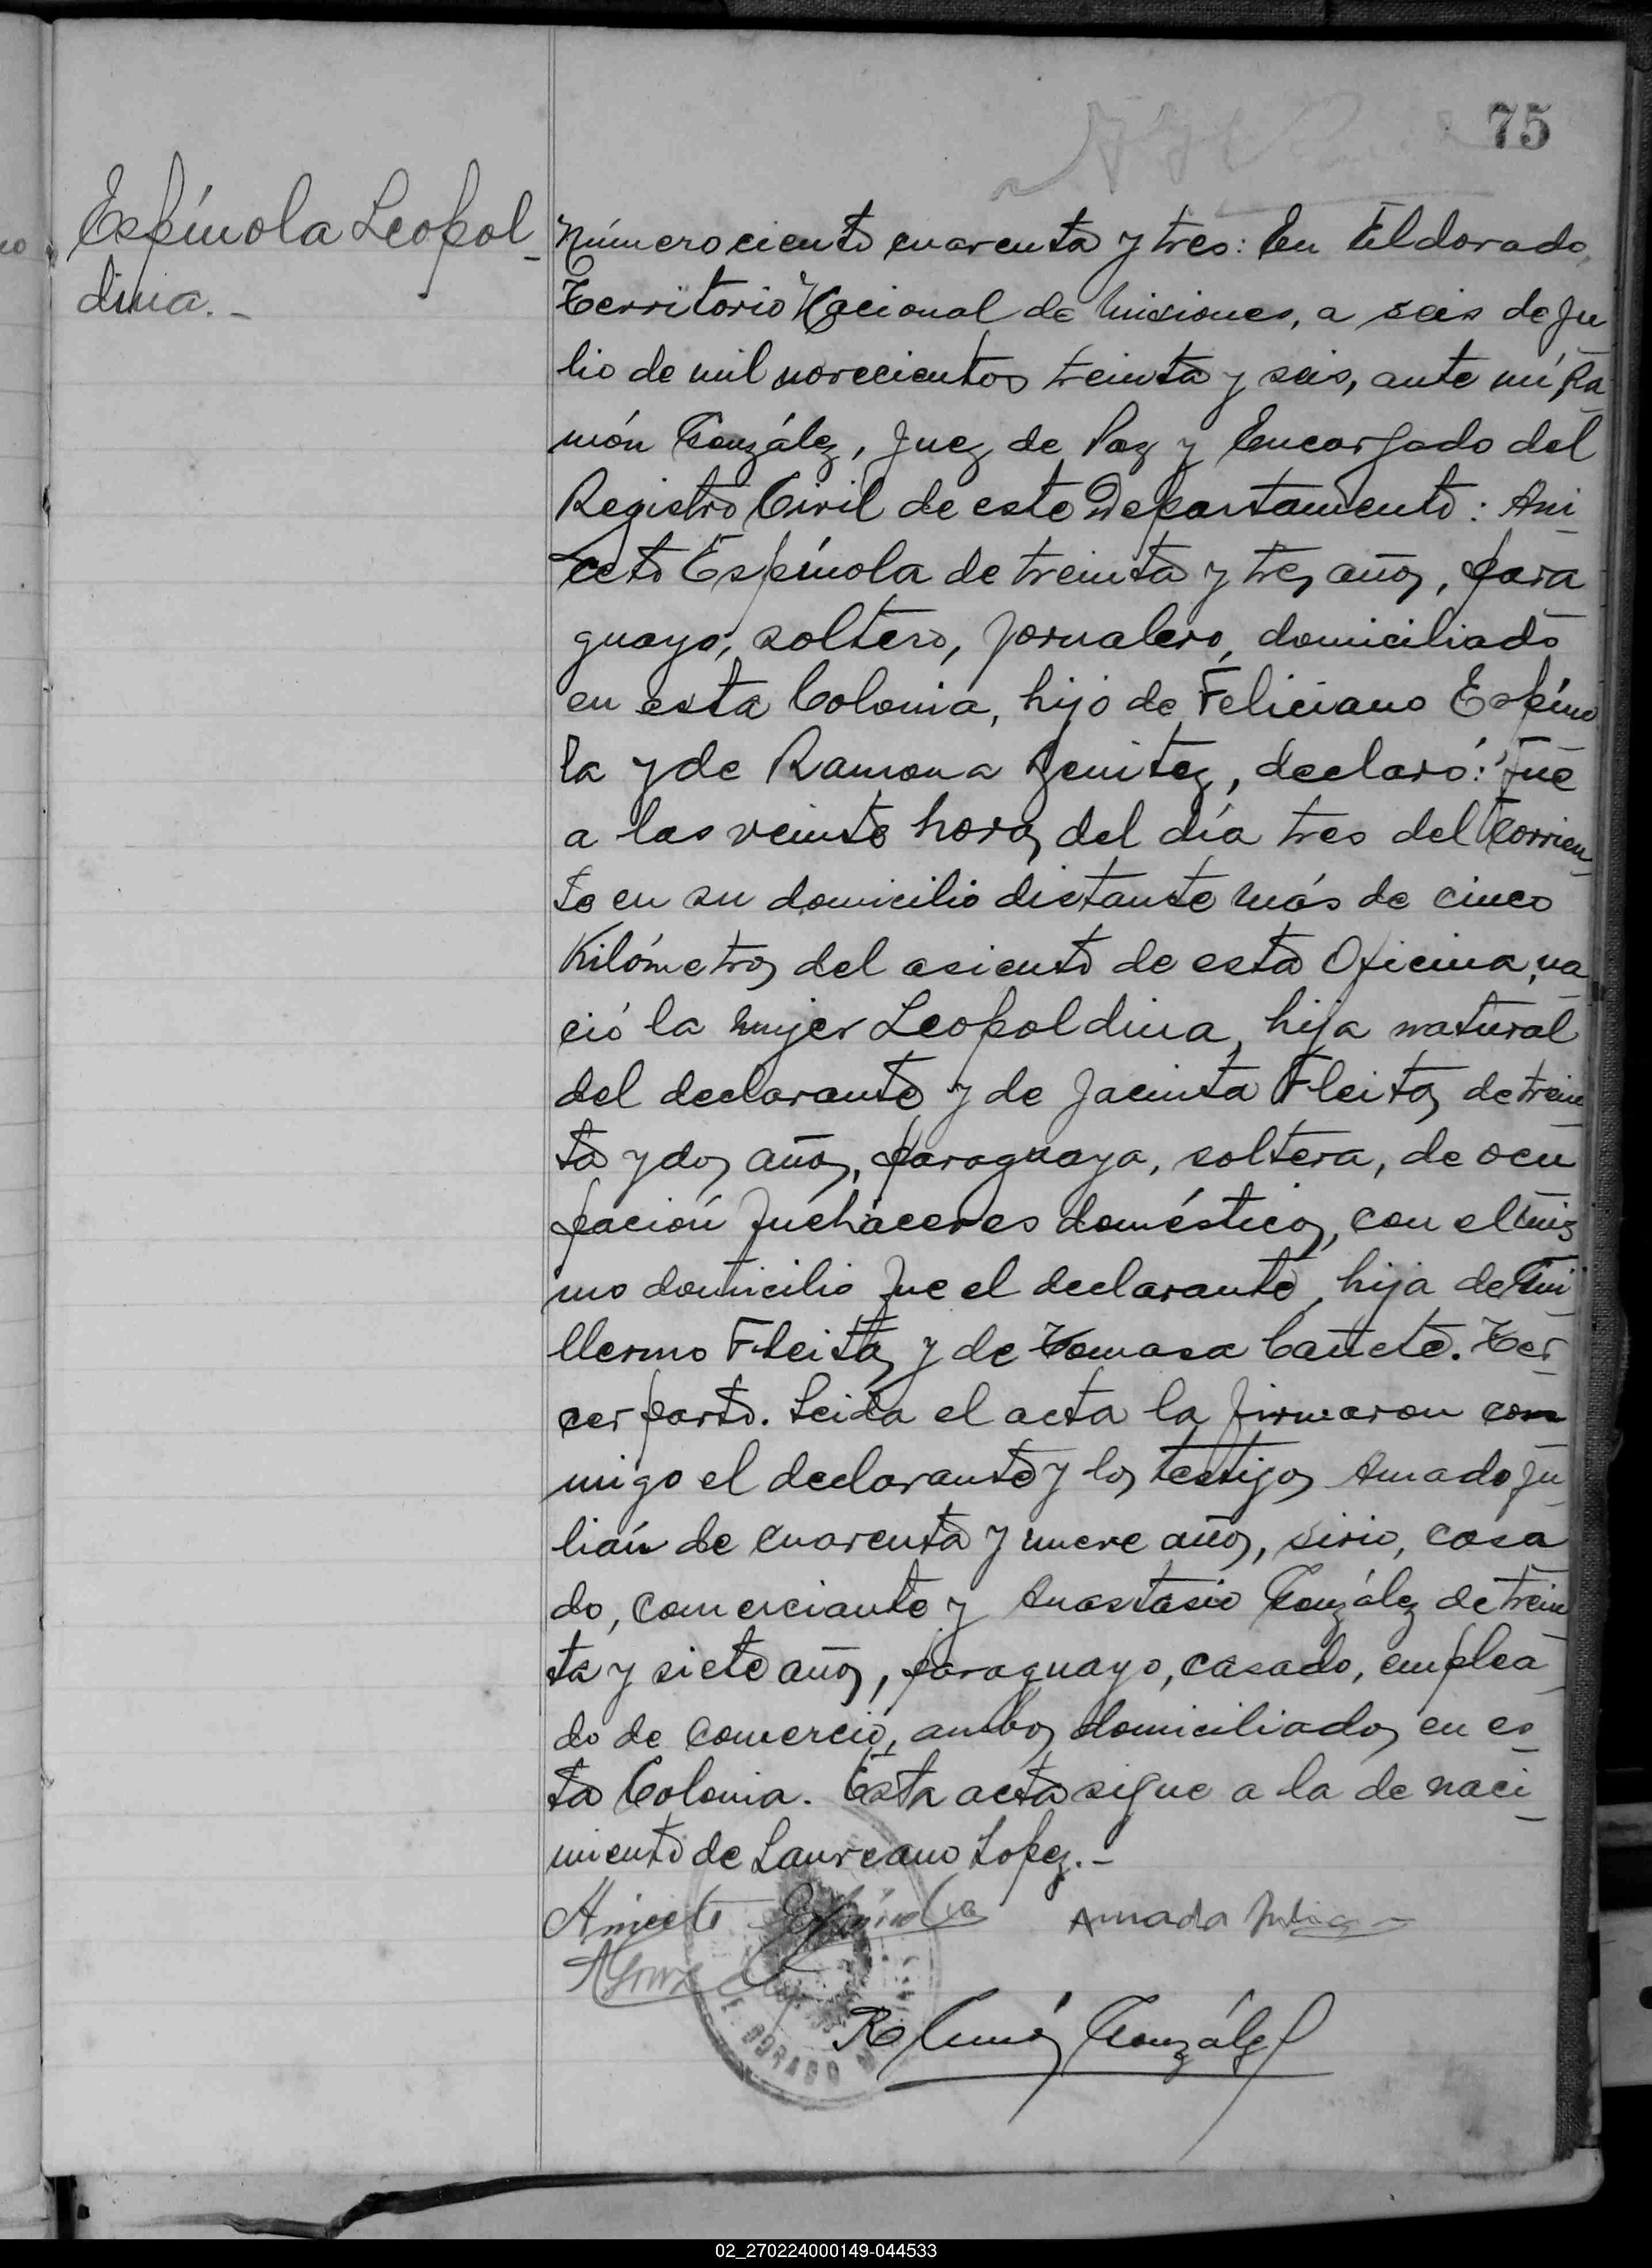 75
Espínola Leopol-
dina.-
Número ciento cuarenta y tres: En Eldorado,
Territorio Nacional de Misiones, a seis de Ju
lio de mil novecientos treinta y seis, ante mí Ra
món González, Juez de Paz y Encargado del
Registro Civil de este Departamento: Ani
ceto Espínola de treinta y tres años, para
guayo, soltero, jornalero, domiciliado
en esta Colonia, hijo de Feliciano Espíno
la y de Ramona Benitez, declaró: Que
a las veinte horas del día tres del corrien
te en su domicilio distante más de cinco
Kilómetros del asiento de esta Oficina, na
ció la mujer Leopoldina, hija natural
del declarante y de Jacinta Fleitas de trein
ta y dos años, paraguaya, soltera, de ocu
pación quehaceres domésticos, con el mis
mo domicilio que el declarante, hija de Gui
llermo Fleitas y de Tomasa Cañete. Ter
cer parto. Leida el acta la firmaron con
migo el declarante y los testigos Amado Ju
lián de cuarenta y nueve años, sirio, casa
do, comerciante y Anastasio González de trein
ta y siete años, paraguayo, casado, emplea
do de comercio, ambos domiciliados en es
ta Colonia. Esta acta sigue a la de naci
miento de Laureano Lopez.-
Aniceto Espínola Amado Julian
Ramón González
02_270224000149-044533